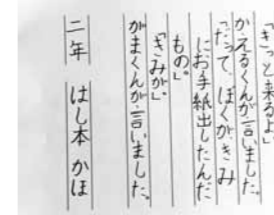 「きっと来るよ」
かえるくんが言いました。
「だって、ぼくがきみ
にお手紙出したんだ
もの。」
「きみが。」
がまくんが言いました。
二年 はし本 かほ